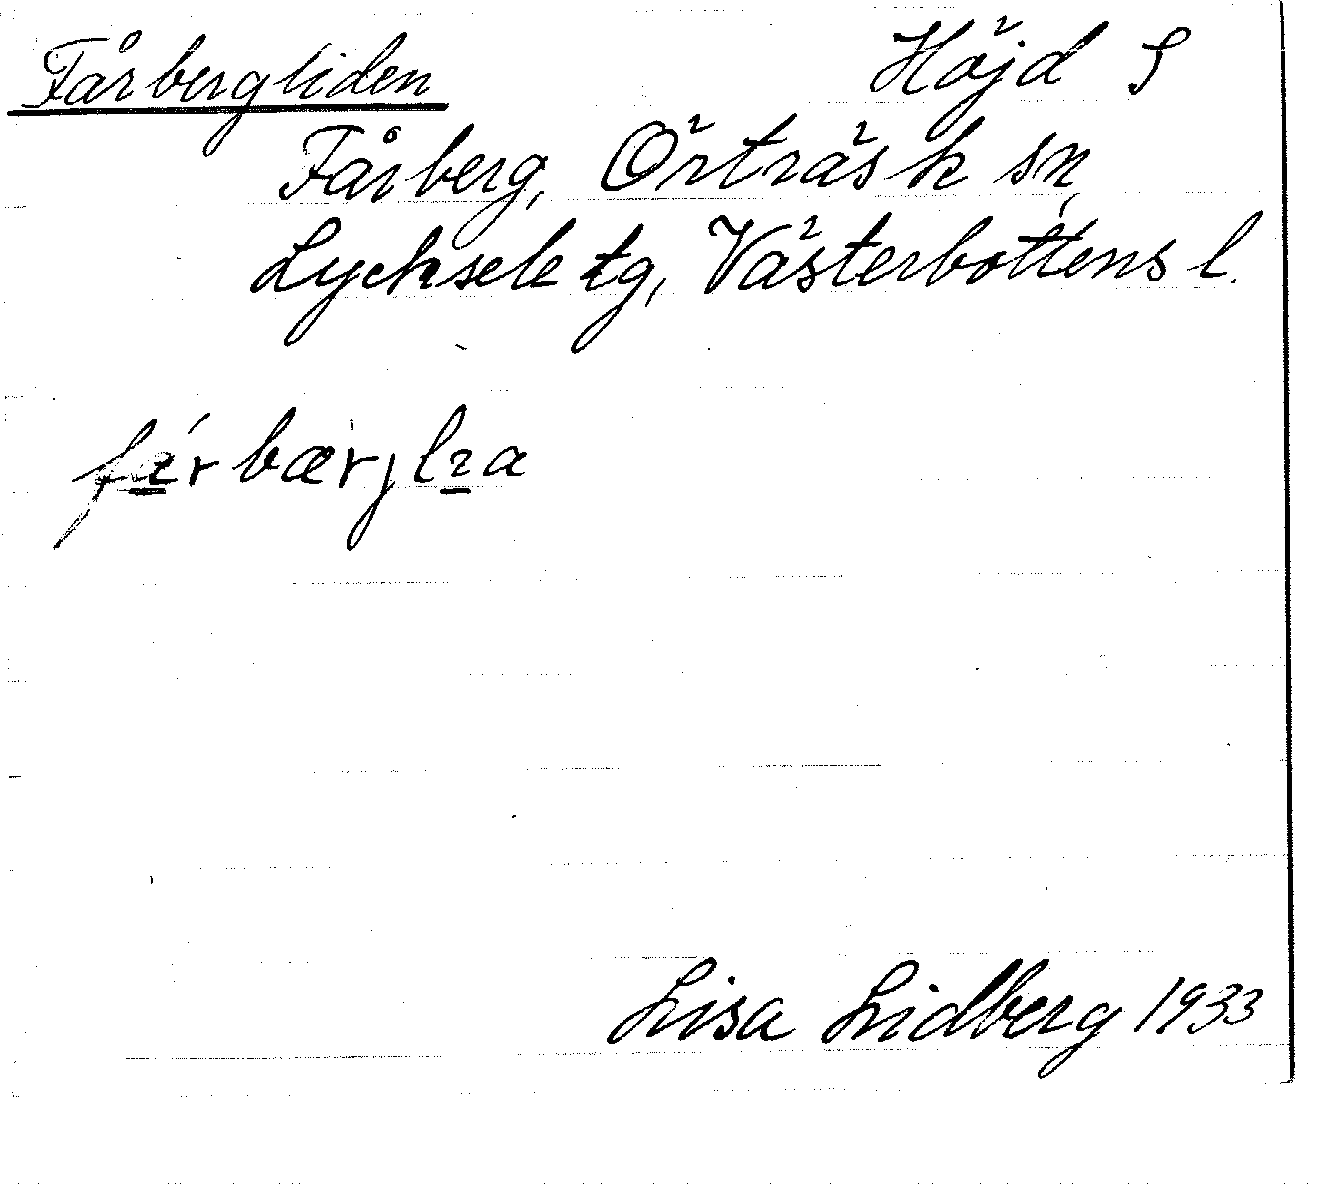 Fårbergliden Höjd S
Fårberg, Örträsk sn
Lycksele tg, Västerbottens l.
Lisa Lidberg 1933